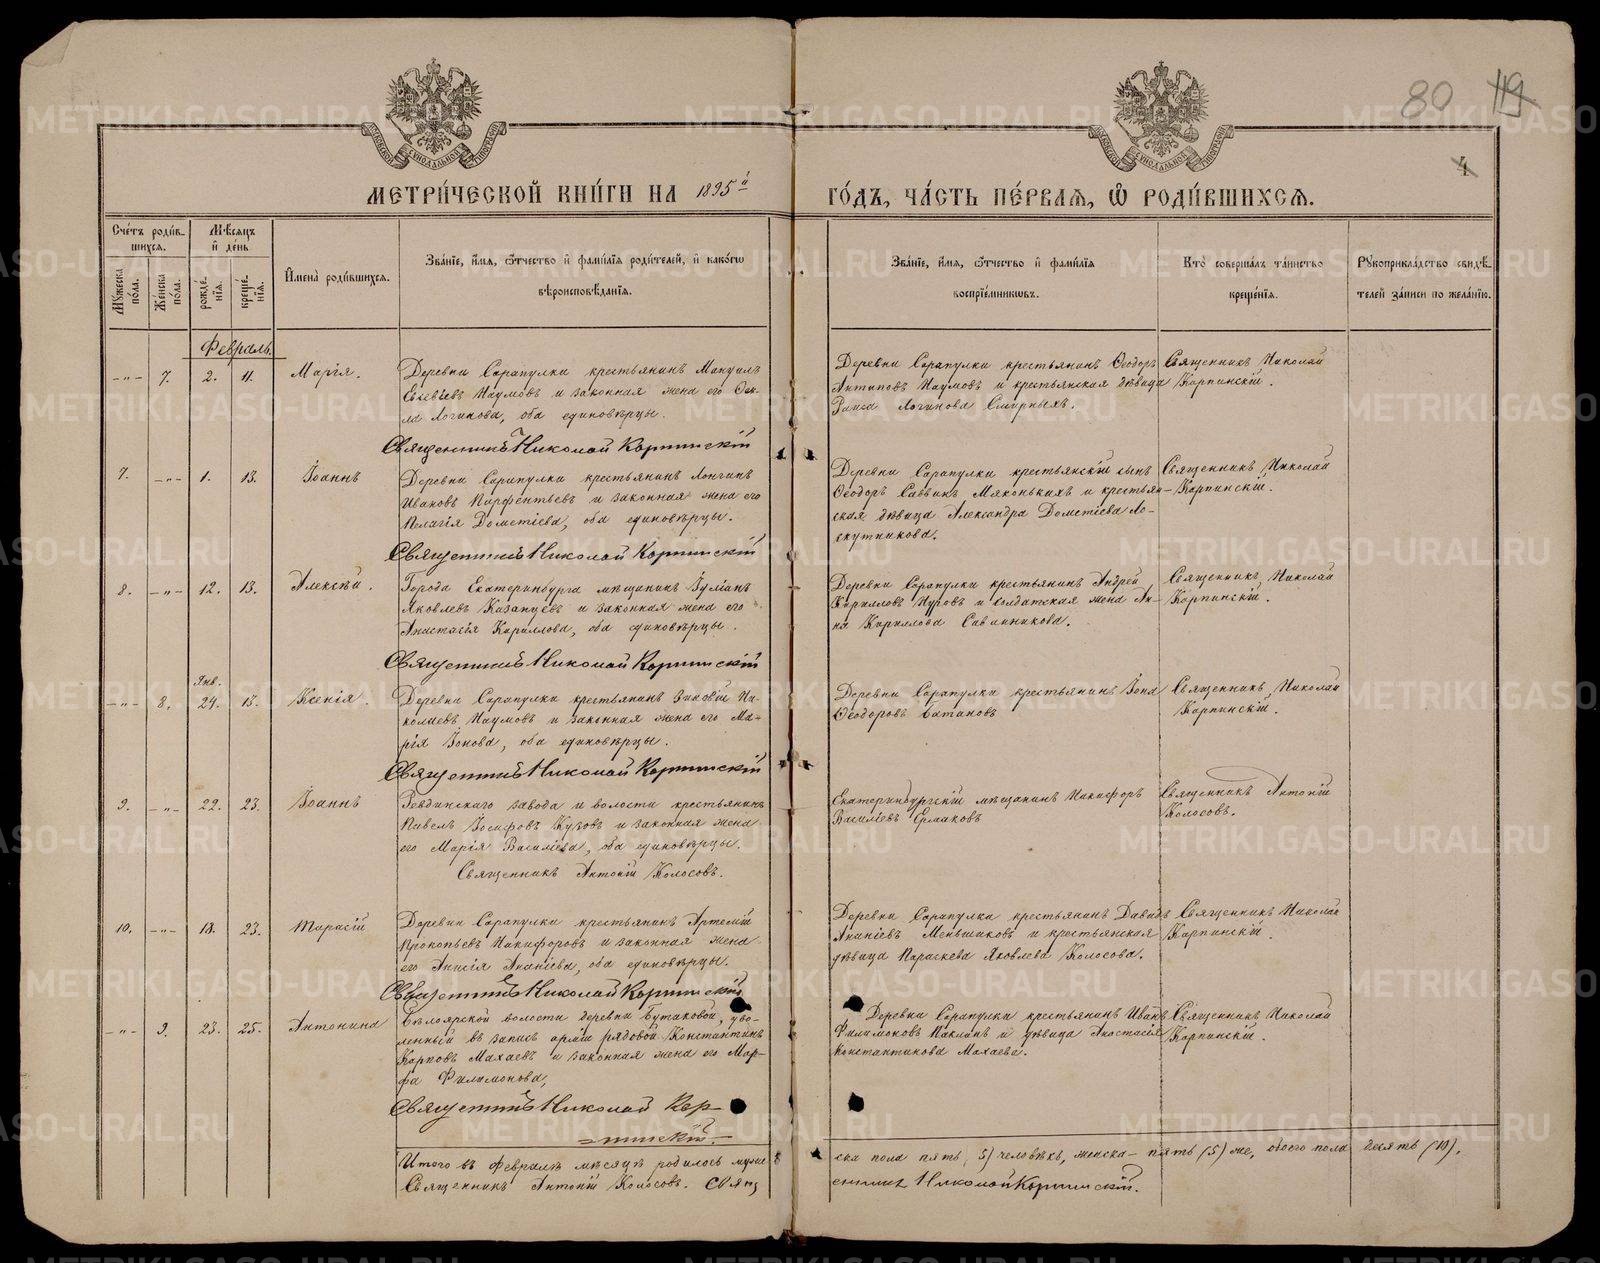 80 119
4
МОСКОВСКОЙ СѴНОДАЛЬНОЙ ТИПОГРАФІИ
МОСКОВСКОЙ СѴНОДАЛЬНОЙ ТИПОГРАФІИ
МЕТРИ́ЧЕСКОЙ КНИ́ГИ НА 1895й ГО́ДЪ, ЧА́СТЬ ПЕ́РВАЯ, Ѿ РОДИ́ВШИХСЯ.
Сче́тъ роди́в-
шихся.
Мꙋжеска по́ла.
Же́нска по́ла.
Мѣ́сяцъ и҆ де́нь
рожде́-
нїя.
креще́-
нїя.
И҆мена̀ роди́вшихся.
Зва́нїе, и҆́мя, ѻ҆́тчество и҆ фами́лїя роди́телей, и҆ како́гѡ
вѣроисповѣ́данїя.
Зва́нїе, и҆́мя, ѻ҆́тчество и҆ фами́лїя
воспрїе́мникѡвъ.
Кто̀ соверша́лъ та́инство
креще́нїя.
Рꙋкоприкла́дство свидѣ́-
телей за́писи по жела́нїю.
Февраль.
-"- 7. 2. 4. Марія.
Деревни Сарапулки крестьянинъ Мануилъ
Евсевіевъ Наумовъ и законная жена его Ѳек-
ла Логинова, оба единовѣрцы.
Священникъ Николай Карпинскій
Деревни Сарапулки крестьянинъ Ѳеодоръ
Антиповъ Наумовъ и крестьянская дѣвица
Раиса Логинова Смирныхъ.
Священникъ Николай
Карпинскій.
7. -"- 1. 13. Іоаннъ
Деревни Сарапулки крестьянинъ Лонгинъ
Ивановъ Парфентьевъ и законная жена его
Пелагія Дометіева, оба единовѣрцы.
Священникъ Николай Карпинскій
Деревни Сарапулки крестьянскій сынъ
Ѳеодоръ Саввинъ Мяконькихъ и крестьян-
ская дѣвица Александра Дометіева Ло-
скутникова.
Священникъ Николай
Карпинскій.
8. -"- 12. 13. Алексѣй.
Города Екатеринбурга мѣщанинъ Іуліанъ
Яковлевъ Казанцевъ и законная жена его
Анастасія Кириллова, оба единовѣрцы.
Священникъ Николай Карпинскій
Деревни Сарапулки крестьянинъ Андрей
Кирилловъ Нуровъ и солдатская жена Ан-
на Кириллова Савинникова.
Священникъ Николай
Карпинскій.
Янв.
-"- 8. 24. 13. Ксенія.
Деревни Сарапулки крестьянинъ Зиновій Ни-
колаевъ Наумовъ и законная жена его Ма-
рія Іонова, оба единовѣрцы.
Священникъ Николай Карпинскій
Деревни Сарапулки крестьянинъ Іона
Ѳеодоровъ Батановъ
Священникъ Николай
Карпинскій.
9. -"- 22. 23. Іоаннъ
Ревдинскаго завода и волости крестьянинъ
Павелъ Іосифовъ Кузовъ и законная жена
его Марія Василіева, оба единовѣрцы.
Священникъ Антоній Колосовъ.
Екатеринбургскій мѣщанинъ Никифоръ
Василіевъ Ермаковъ
Священникъ Антоній
Колосовъ.
10. -"- 18. 23. Тарасій
Деревни Сарапулки крестьянинъ Артемій
Прокопьевъ Никифоровъ и законная жена
его Анисія Ананіева, оба единовѣрцы.
Священникъ Николай Карпинскій
Деревни Сарапулки крестьянинъ Давидъ
Ананіевъ Меньшиковъ и крестьянская
дѣвица Параскева Яковлева Колосова.
Священникъ Николай
Карпинскій.
-"- 9. 23. 25. Антонина
Бѣлоярской волости деревни Бутаковой, уво-
ленный въ запасъ арміи рядовой Константинъ
Карповъ Махаевъ и законная жена его Мар-
фа Филимонова,
Священникъ Николай Кар-
пинскій.
Деревни Сарапулки крестьянинъ Иванъ
Филимоновъ Паклинъ и дѣвица Анастасія
Константинова Махаева.
Священникъ Николай
Карпинскій.
Итого въ Февралѣ мѣсяцѣ родилось муже-
ска пола пять (5) человѣкъ, женска – пять (5) же, обоего пола десять (10).
Священникъ Антоній Колосовъ. Свящ
енникъ Николай Карпинскій.
METRIKI.GASO-URAL.RU